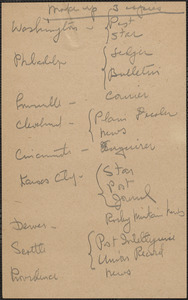 Made up 3 copies
Washington - Post
Star
Philadelphia Ledger
Bulletin
Louisville - Courier
Cleveland - Plain Dealer
News
Cincinnati - Enquirer
Kansas City - Star
Post
Journal
Denver - Rocky Mountain News
Seattle - Post Intelligencer
Union Record
Providence - News